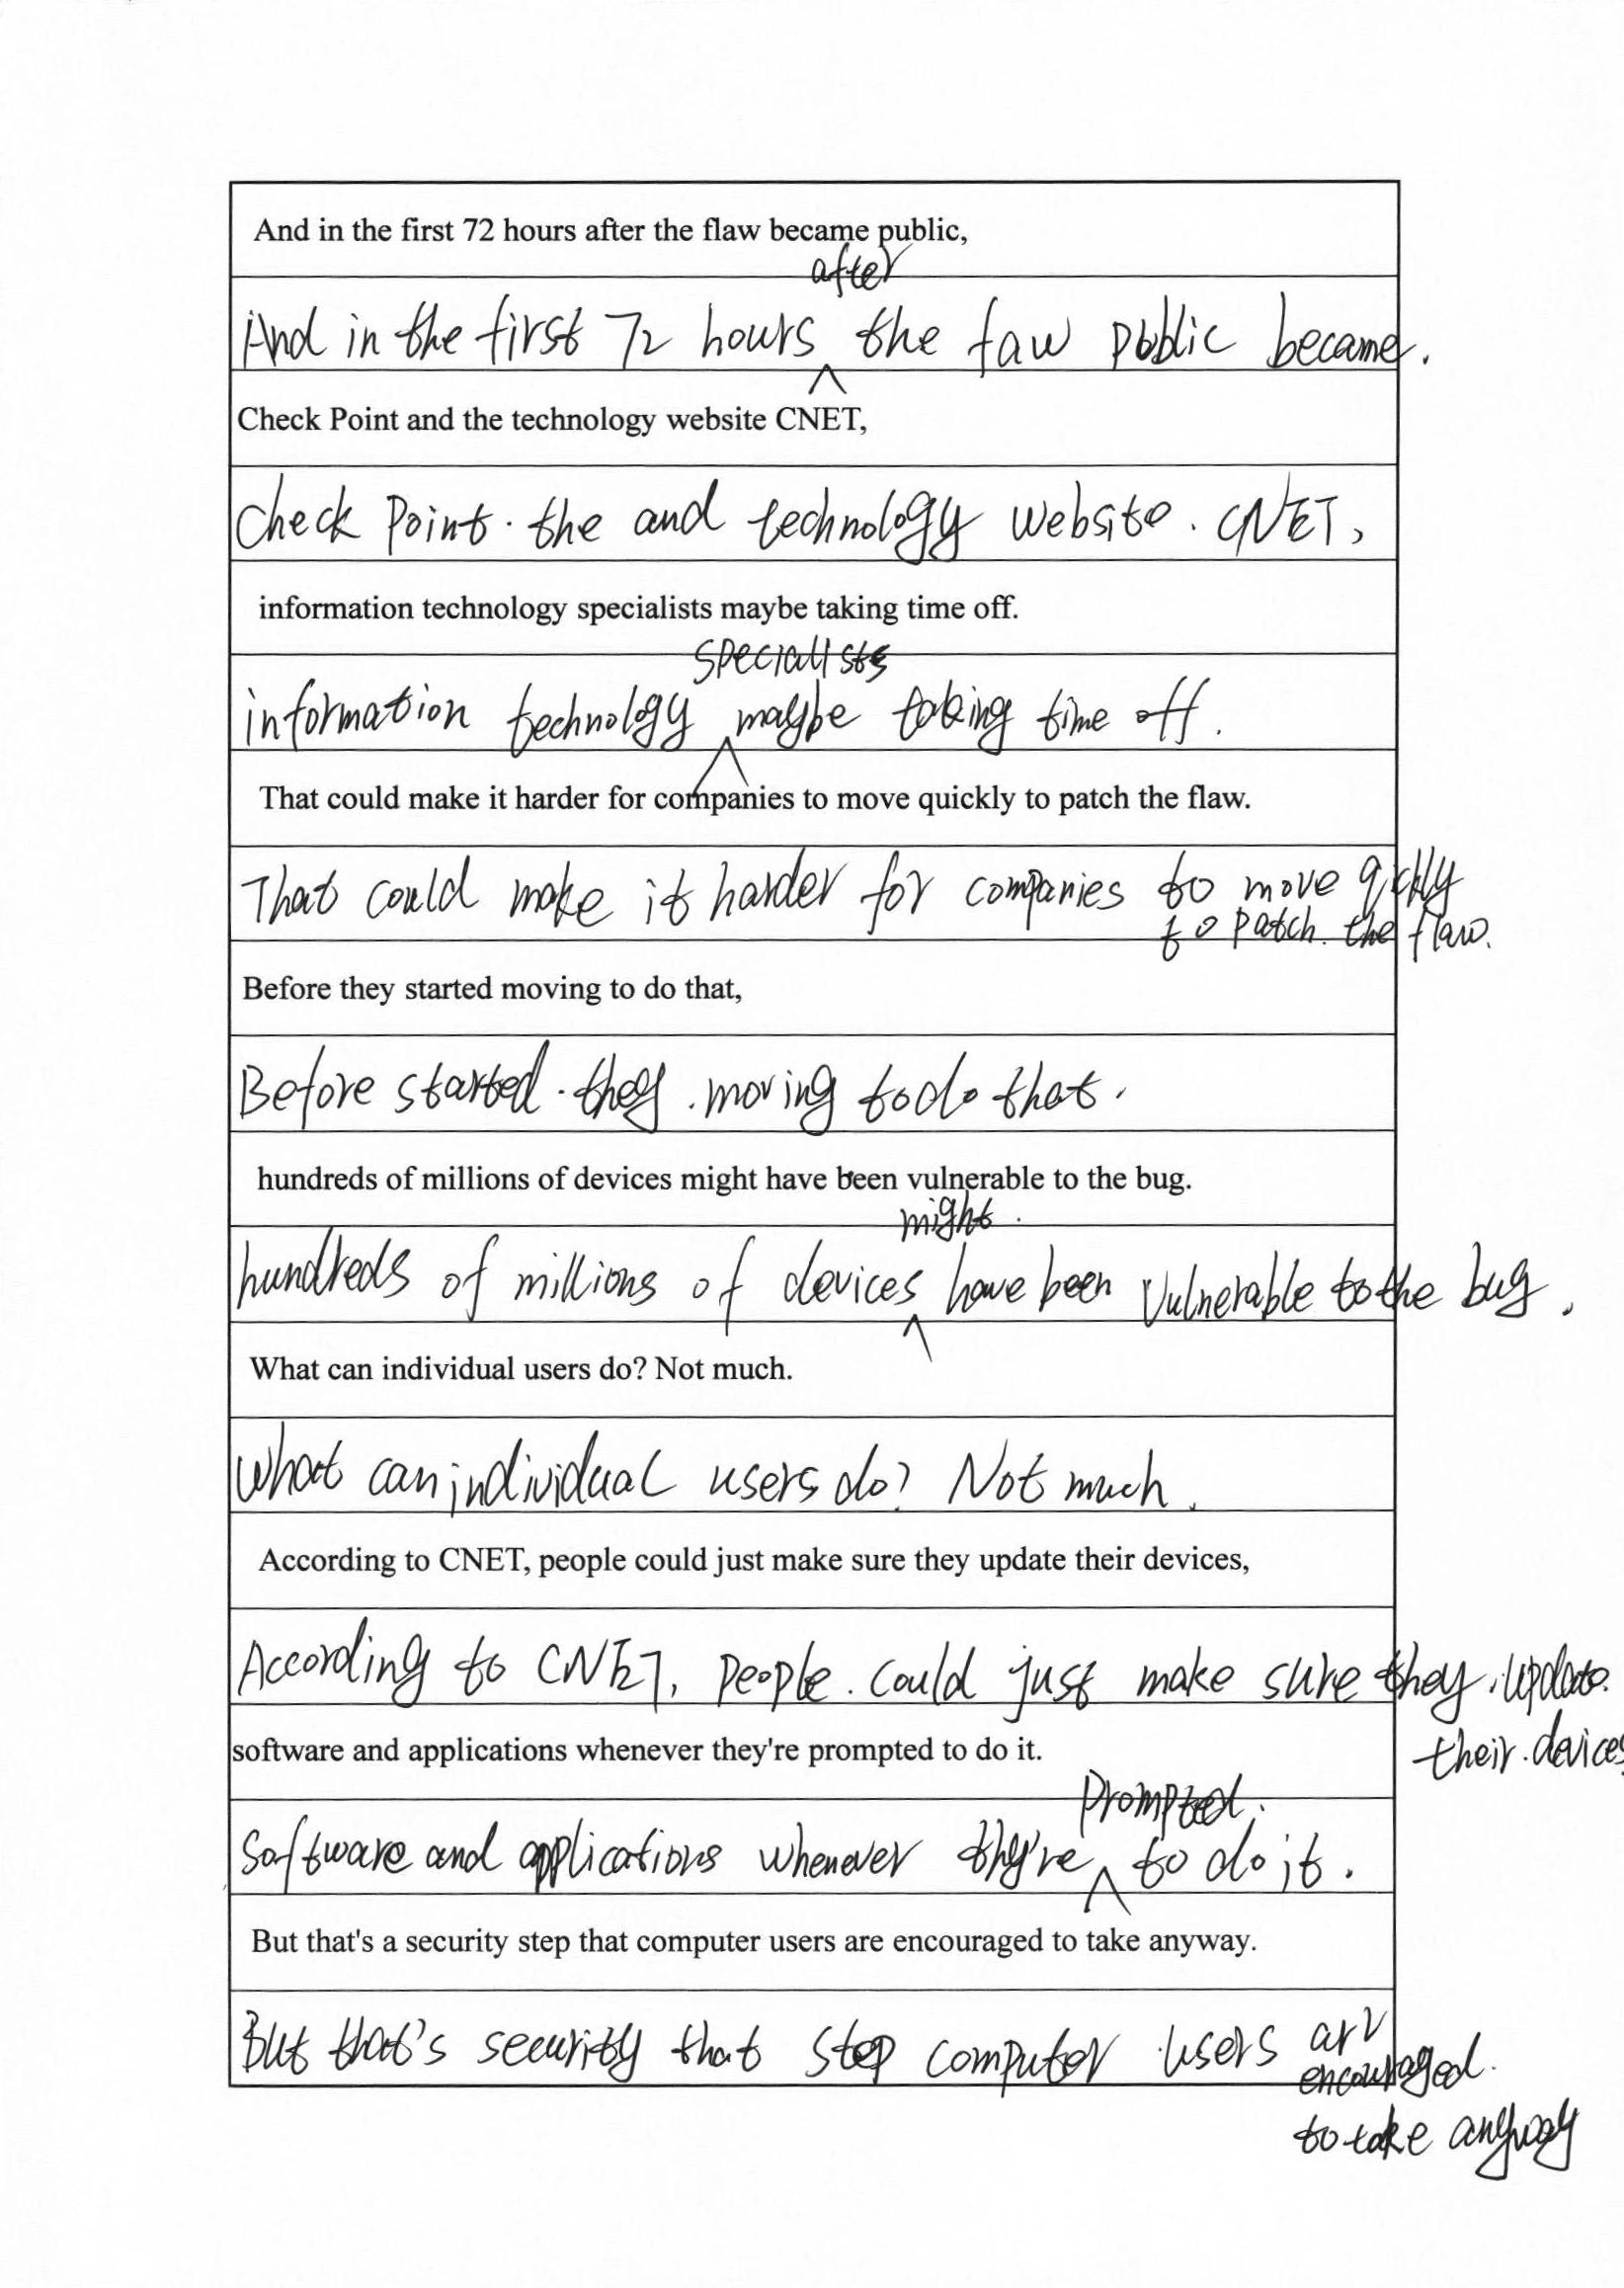 And in the first 72 hours after the flaw became public,
after
And in the first 72 hours the faw public became.
Check Point and the technology website CNET,
Check Point. the and technology website. CNET,
information technology specialists maybe taking time off.
specialists
information technology maybe taking time off.
That could make it harder for companies to move quickly to patch the flaw.
That could make it harder for companies to move qickly
to patch. the flaw.
Before they started moving to do that,
Before started. they. moving to do that.
hundreds of millions of devices might have been vulnerable to the bug.
might.
hundreds of millions of devices have been vulnerable to the bug.
What can individual users do? Not much.
What can individual users do? Not much.
According to CNET, people could just make sure they update their devices,
According to CNET, people. could just make sure they. update.
their. devices
software and applications whenever they're prompted to do it.
prompted.
Software and applications whenever thy're to do it.
But that's a security step that computer users are encouraged to take anyway.
But that's security that step computer users are
encouraged.
to take anyway